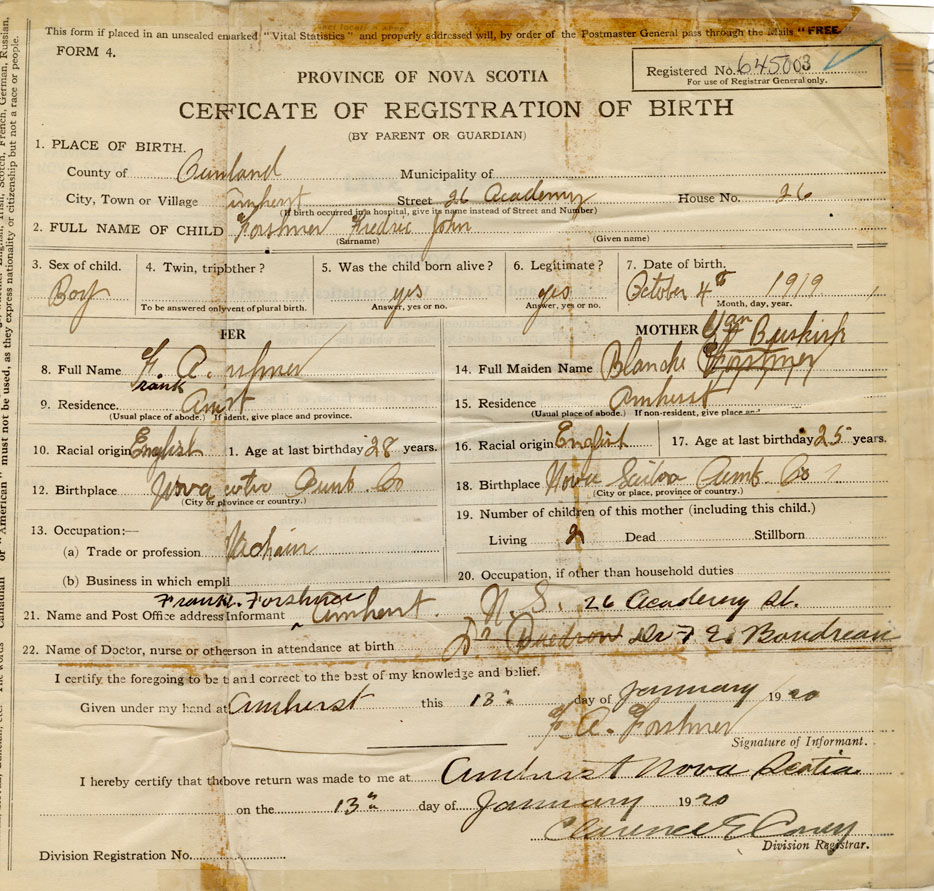 This form if placed in an unsealed emarked "Vital Statistics" and properly addressed will, by order of the Postmaster General pass through the Mails "FREE
FORM 4.
Registered No. 645003
For use of Registrar General only.
PROVINCE OF NOVA SCOTIA
CERFICATE OF REGISTRATION OF BIRTH
(BY PARENT OR GUARDIAN)
1. PLACE OF BIRTH.
County of Cumland Municipality of
City, Town or Village Amherst Street 26 Academy House No. 26
(If birth occurred in a hospital, give its name instead of Street and Number)
2. FULL NAME OF CHILD Forshner Fredric John
(Surname) (Given name)
3. Sex of child. 4. Twin, tripother? 5. Was the child born alive? 6. Legitimate? 7. Date of birth.
Boy yes yes October 4th 1919
To be answered only vent of plural birth. Answer, yes or no. Answer, yes or no. Month, day, year.
FER MOTHER Van Buskirk
8. Full Name F. A. 14. Full Maiden Name Blanche Forshner
Frank
9. Residence Amst 15. Residence Amherst
(Usual place of abode.) If ident, give place and province. (Usual place of abode.) If non-resident, give place and
10. Racial origin English 1. Age at last birthday 28 years. 16. Racial origin English 17. Age at last birthday 25 years.
12. Birthplace Nova cotia Cumb. Co 18. Birthplace Nova Scotia Cumb. Co
(City or place, province or country.) (City or place, province or country.)
19. Number of children of this mother (including this child.)
13. Occupation:—
(a) Trade or profession Living 2 Dead Stillborn
(b) Business in which empl 20. Occupation, if other than household duties
Frank. Forshner
21. Name and Post Office address Informant Amherst N. S. 26 Academy St.
22. Name of Doctor, nurse or otherson in attendance at birth Dr Dr F E. Boudreau
I certify the foregoing to be t and correct to the best of my knowledge and belief.
Given under my hand at Amherst this 13th day of January 1920
F. A. Forshner
Signature of Informant.
I hereby certify that thbove return was made to me at Amherst Nova Scotia
on the 13th day of January 1920
Clarence E Casey
Division Registration No. Division Registrar.